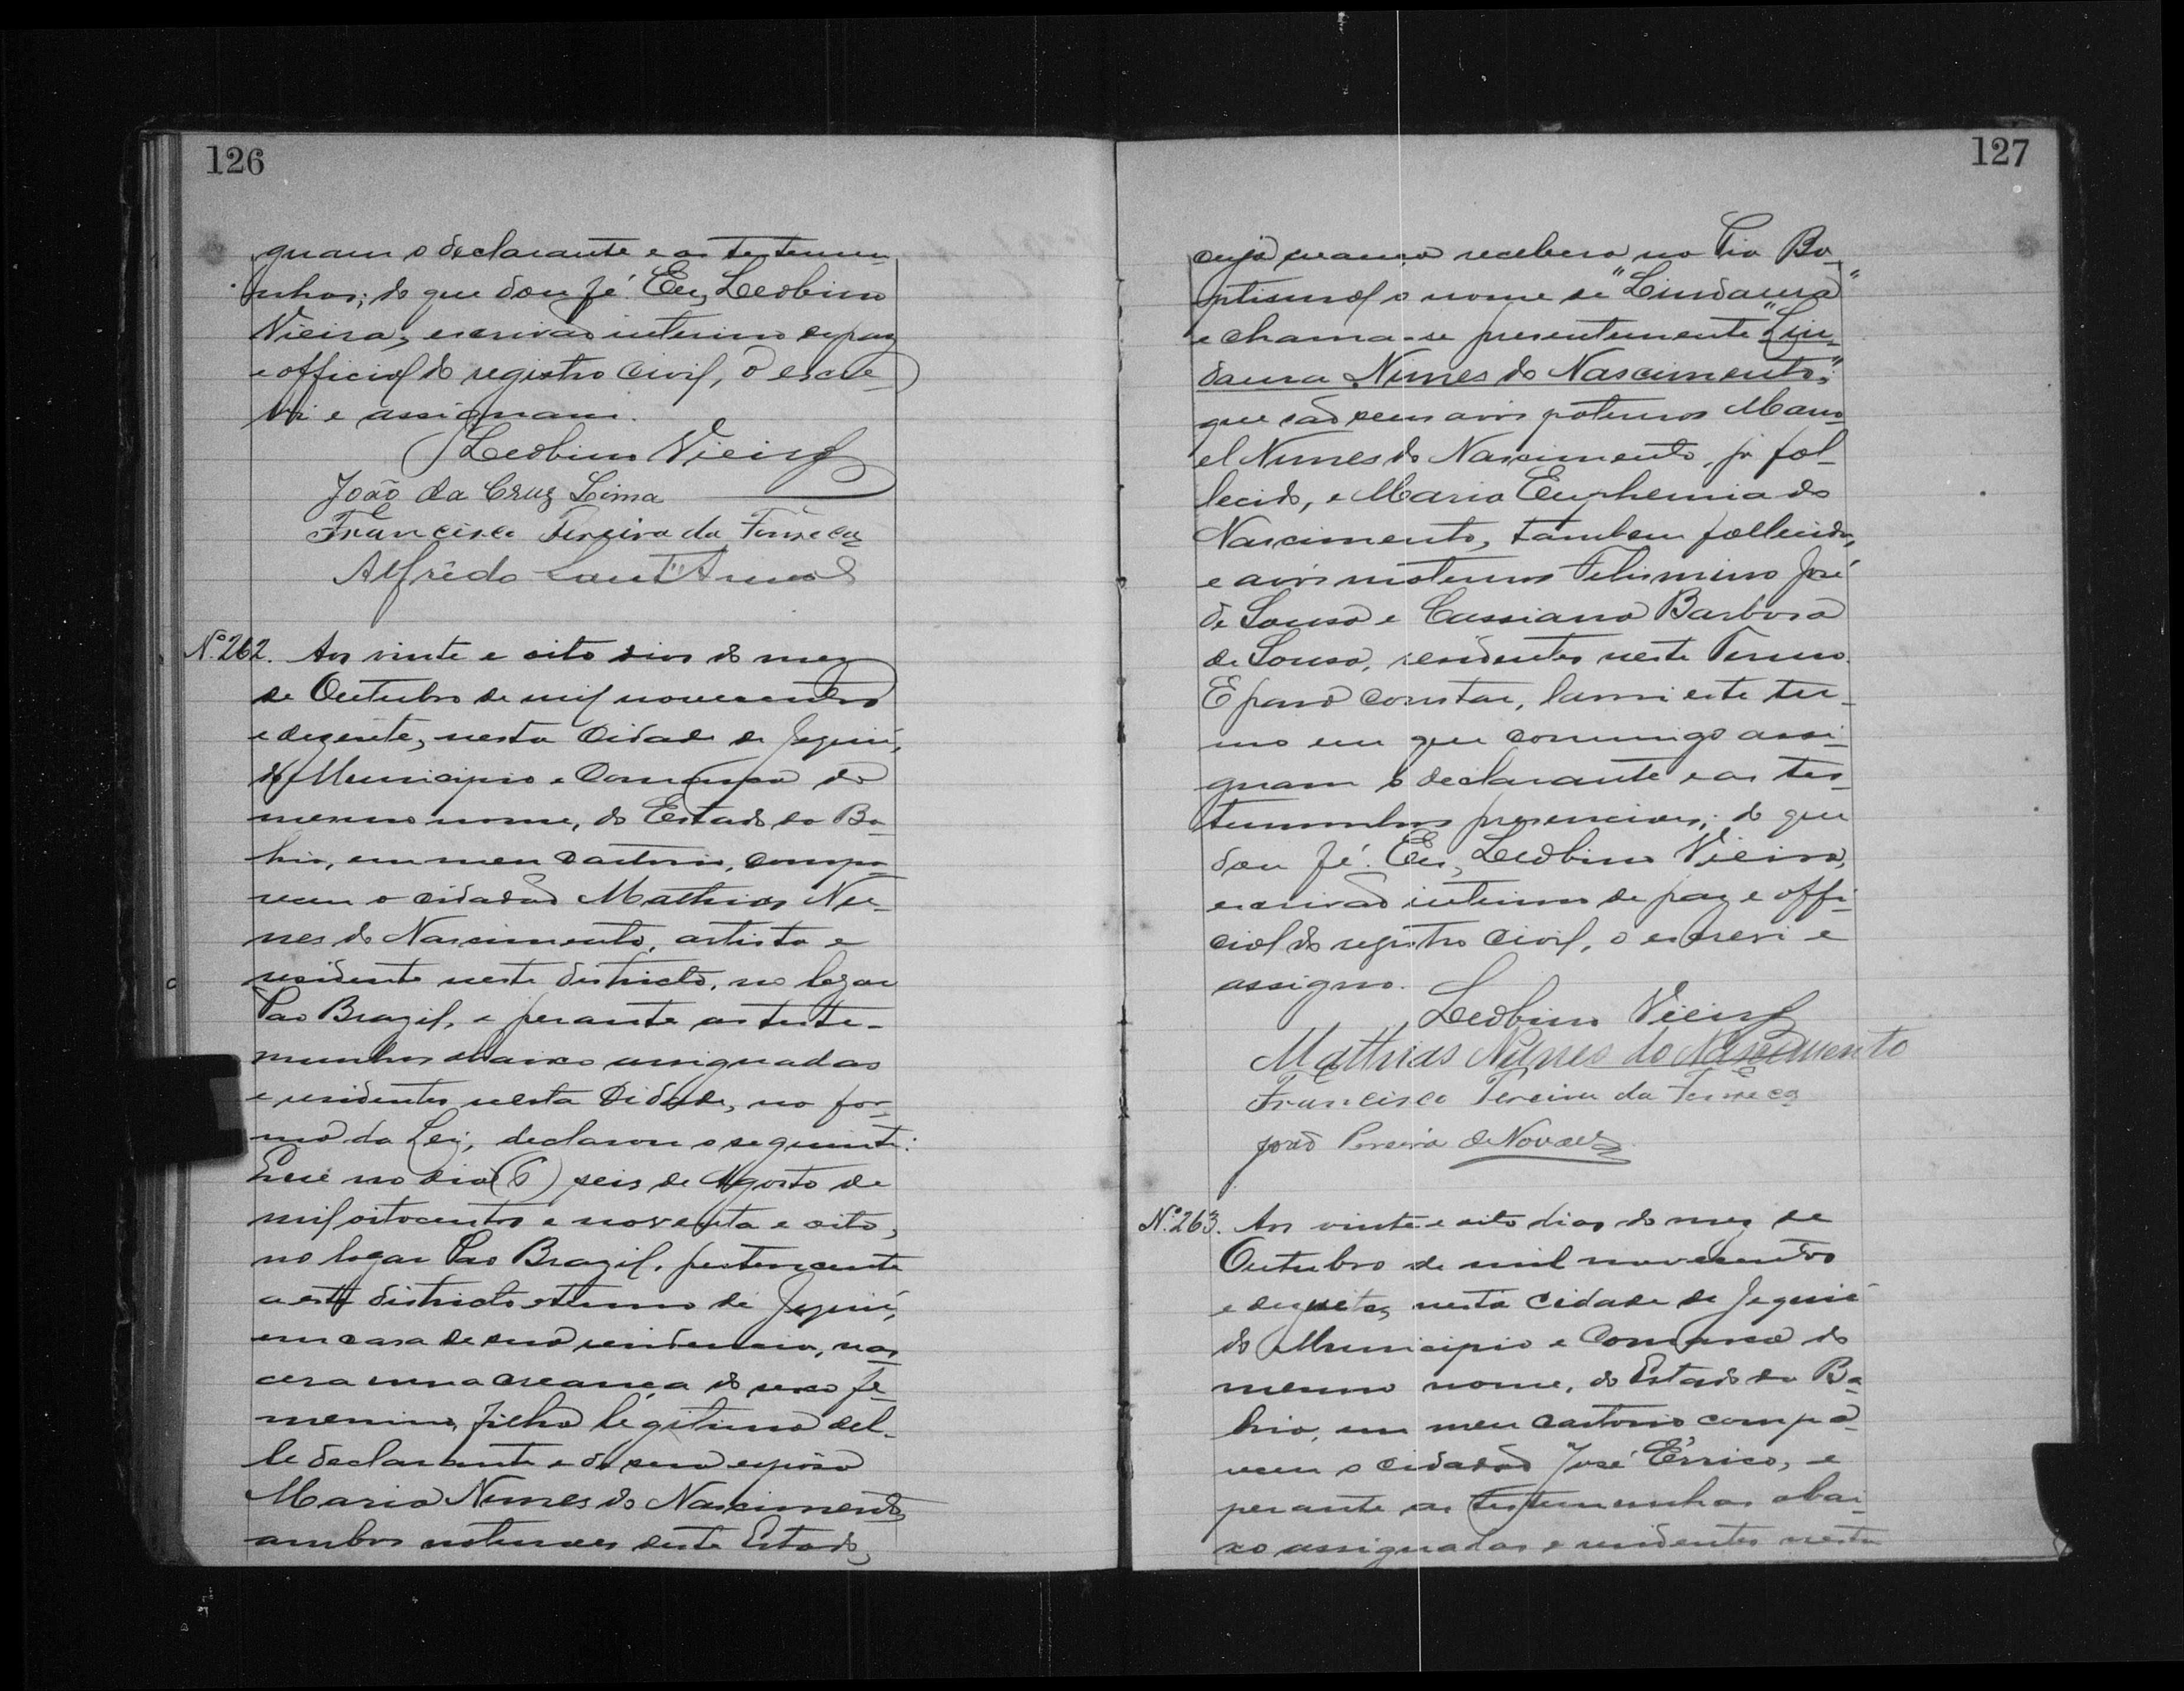 126
gnam o declarante e as testemu-
nhas; do que dou fé. Eu, Leobino
Vieira, escrivão interino de paz
e official do registro civil, o escre-
vi e assignam.
Leobino Vieira
João da Cruz Lima
Francisco Pereira da Fonseca
Alfrêdo Sant'Anna
Nº 262. Aos vinte e oito dias do mez
de Outubro de mil novecentos
e dezesete, nesta Cidade de Jequié,
do Municipio e Comarca do
mesmo nome, do Estado da Ba-
hia, em meu Cartorio, compa-
receu o cidadão Mathias Nu-
nes do Nascimento, artista e
residente neste districto, no logar
Pao Brazil, e perante as teste-
munhas abaixo assignadas
e residentes nesta Cidade, na for-
ma da Lei, declarou o seguinte:
Que no dia (6) seis de Agosto de
mil oitocentos e noventa e oito,
no logar Pao Brazil, pertencente
a este districto e termo de Jequié,
em casa de sua residencia, nas-
cera uma creança do sexo fe-
menino, filha legitima del-
le declarante e de sua esposa
Maria Nunes do Nascimento,
ambos naturaes deste Estado,
127
cuja creança recebera na Pia Ba-
ptismal o nome de "Lindaura"
e chama-se presentemente "Lin-
daura Nunes do Nascimento;"
que são seus avós paternos Mano-
el Nunes do Nascimento, já fal-
lecido, e Maria Euphemia do
Nascimento, tambem fallecida,
e avós maternos Felismino José
de Sousa e Cassiana Barbosa
de Sousa, residentes neste Termo.
E para constar, lavrei este ter-
mo em que commigo assi-
gnam o declarante e as tes-
temunhas presenciaes; do que
dou fé. Eu, Leobino Vieira,
escrivão interino de paz e offi-
cial do registro civil, o escrevi e
assigno.
Leobino Vieira
Mathias Nunes do Nascimento
Francisco Pereira da Fonseca
João Pereira de Novaes
Nº 263. Aos vinte e oito dias do mez de
Outubro de mil novecentos
e dezesete, nesta Cidade de Jequié
do Municipio e Comarca do
mesmo nome, do Estado da Ba-
hia, em meu cartorio compa-
receu o cidadão José Érrico, e
perante as testemunhas abai-
xo assignadas e residentes nesta